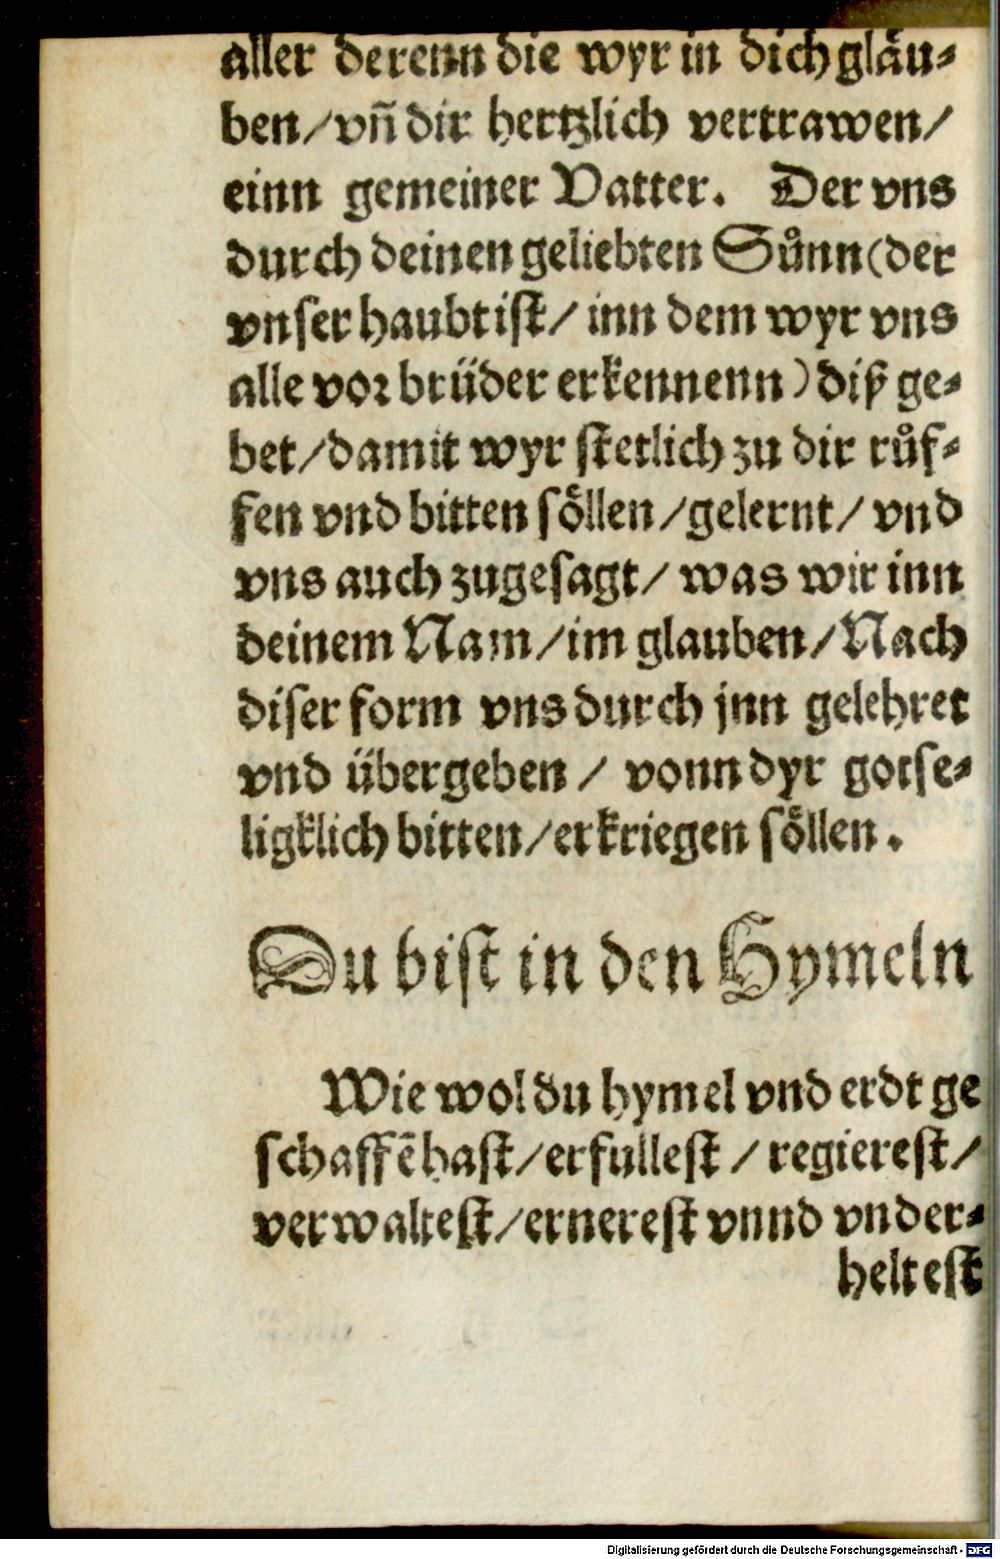 aller derenn die wyr in dich glaͤu⸗
ben/vñ dir hertzlich vertrawen/
einn gemeiner Vatter. Der vns
durch deinen geliebten Suͦnn(der
vnſer haubt iſt/ inn dem wyr vns
alle vor bruͤder erkennenn) diß ge⸗
bet/damit wyr ſtetlich zu dir ruͦf⸗
fen vnd bitten ſoͤllen/gelernt/ vnd
vns auch zugeſagt/ was wir inn
deinem Nam/im glauben/Nach
diſer form vns durch jnn gelehret
vnd übergeben / vonn dyr gotſe⸗
ligklich bitten/erkriegen ſoͤllen.
Du biſt in den Hymeln
Wie wol du hymel vnd erdt ge
ſchaffē haſt/erfulleſt / regiereſt/
verwalteſt/ernereſt vnnd vnder⸗
helteſt
Digitalisierung gefördert durch die Deutsche Forschungsgemeinschaft - DFG